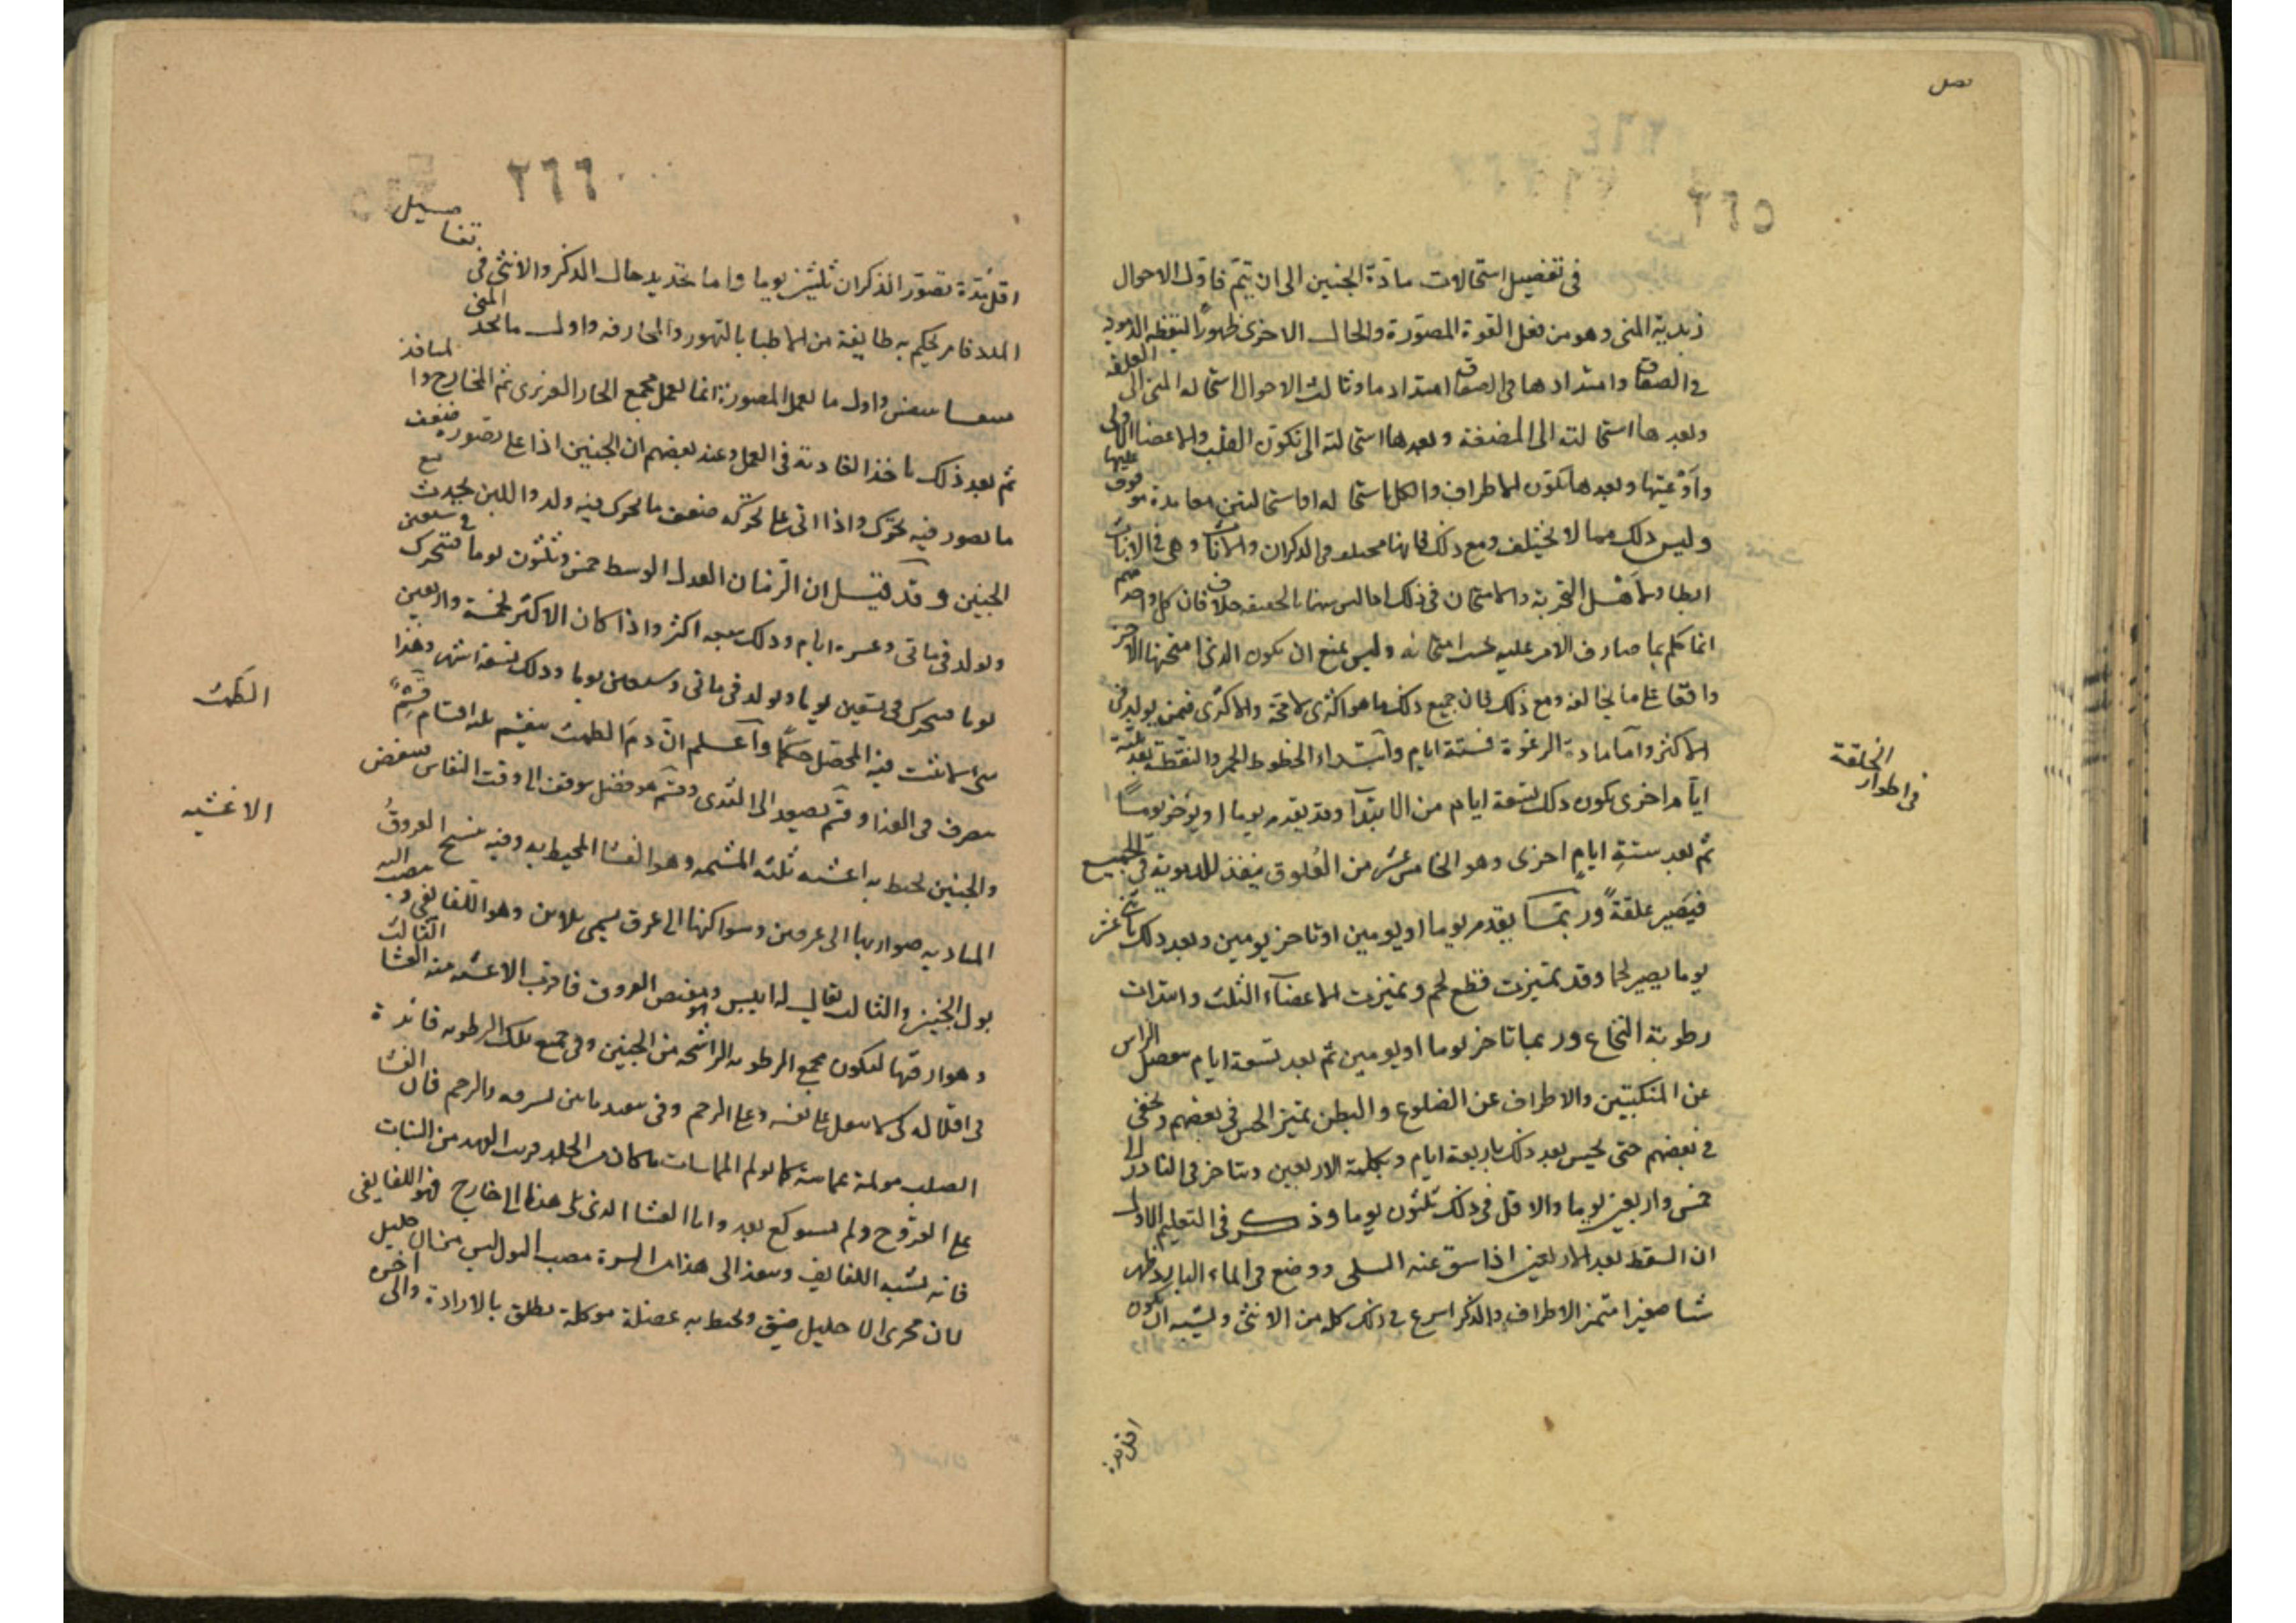 فصل
٢٦٥
فى تفصيل استحالات مادة الجنين الى ان يتم فاول الاحوال
زبدية المنى وهو من فعل القوة المصورة والحال الاخرى ظهور النقطة الدموية
فى الصفاق وامتدادها فى الصفاق امتدادا ما وثالث الاحوال استحالة المنى الى العلقة
وبعدها استحالته الى المضغة وبعدها استحالته الى تكون القلب والاعضا الاولى
وأوعيتها وبعدها تكون الاطراف ولكل استحالة او استحالتين مدة موقوف عليها
وليس ذلك مما لا يختلف ومع ذلك فانها مختلف فى الذكران والاناث وهى فى الاناث
ابطا ولاهل التجربة والامتحان فى ذلك اراء ليس بينها بالحقيقة خلاف فان كل واحد منهم
انما حكم بما صادف الامر عليه بحسب امتحانه وليس يمنع ان يكون الذى امتحنه الاخر
واقعا على ما يخالفه ومع ذلك فان جميع ذلك ما هو اكثرى لا محة والاكثرى فيمن يولد فى
الاكثر واما مادة الرغوة فستة ايام وابتداء الخطوط الحمر والنقطة بعد ثلثة
ايام اخرى يكون ذلك تسعة ايام من الابتدا وقد يقدم يوما او يوخر يوما
ثم بعد ستة ايام اخرى وهو الخامس عشر من العلوق ينفذ الدموية فى الجميع
فيصير علقة وربما يقدم يوما او يومين او تاخر يومين وبعد ذلك باثنى عشر
يوما يصير لحما وقد تميزت قطع لحم وتميزت الاعضاء الثلث وامتدات
رطوبة النخاع وربما تاخر يوما او يومين ثم بعد تسعة ايام ينفصل الراس
عن المنكبين والاطراف عن الضلوع والبطن تميز الحس فى بعضهم ويخفى
فى بعضهم حتى يحس بعد ذلك باربعة ايام وتكملة الاربعين ويتاخر فى النادر الى
خمس واربعين يوما والاقل فى ذلك ثلثون يوما وذكر فى التعليم الاول
ان السقط بعد الاربعين اذا شق عنه السلى ووضع فى الماء البارد ظهر
شيا صغيرا متميز الاطراف والذكر اسرع فى ذلك كله من الانثى ويشبه ان يكون
اقل مدة
فى اطوار الخلقة
٢٦٦
تفاصيل
اقل مدة تصور الذكران ثلثين يوما واما تحديد حال الذكر والانثى فى
المدد فامر يحكم به طايفة من الاطبا بالتهور والمجازفة واول ما يجد المنى
متنفسا يتنفس واول ما يعمل المصورة انما يعمل مجمع الحار الغريزى ثم المخارج والمنافذ
ثم بعد ذلك تاخذ الغاذية فى العمل وعند بعضهم ان الجنين اذا على تصوره ضعف
ما تصور فيه تحرك واذا اتى على تحركه ضعف ما تحرك فيه ولد واللبن يحدث مع
الجنين وقد قيل ان الزمان العدل الوسط خمس وثلثون يوما فتتحرك فى سبعين
ويولد فى مائى وعشرة ايام وذلك سبعة اكثر واذا كان الاكثر لخمسة واربعين
يوما فتتحرك فى تسعين يوما ويولد فى مائى وسبعين يوما وذلك تسعة اشهر وهذا
شى لا يثبت فيه المحصل حكما واعلم ان دم الطمث ينقسم ثلثة اقسام قسم
يصرف فى الغذا وقسم يصعد الى الثدى وقسم هو فضل يتوقف الى وقت النفاس ينتفض
والجنين تحيط به اغشية ثلثة المشيمة وهو الغشا المحيط به وفيه تنسج العروق
المتادية ضواربها الى عرقين وسواكنها الى عرق يسمى بلاس وهو اللفايفى وينصب اليه
بول الجنين والثالث يقال له انيس وهو مغيض العروق فاقرب الاغشية منه الغشا الثالث
وهو ارقها ليكون مجمع الرطوبة الراشحة من الجنين وفى جميع تلك الرطوبة فائدة
فى اقلاله كى لا يثقل على نفسه وعلى الرحم وفى تبعيد ما بين بشرته والرحم فان الغشا
الصلب مولمة بمماسته كما يولم المماسات ما كان من الجلد قريب العهد من النبات
على القروح ولم يستوكع بعد واما الغشا الذى يلى هذا الى خارج فهو اللفايفى
فانه يشبه اللفايف وينفذ الى هذا من السرة مصب البول ليس من الاحليل
لان مجرى الاحليل ضيق وتحيط به عضلة موكلة تطلق بالارادة والى اخره
الطمث
الاغشيه